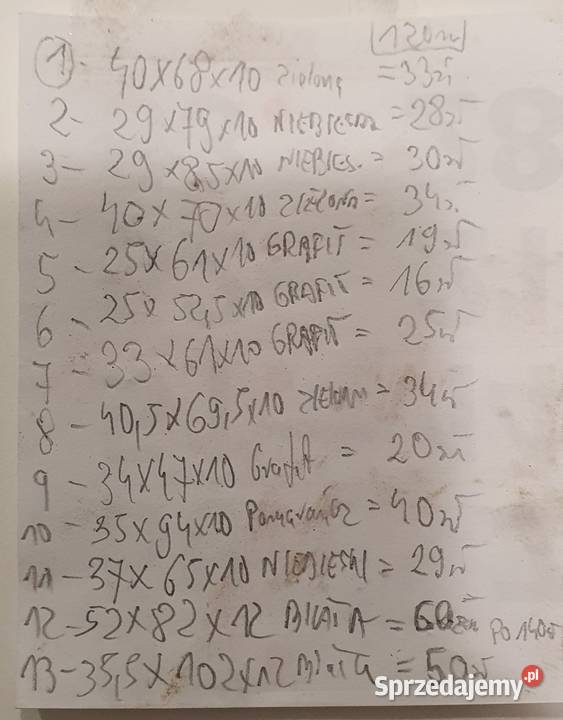 120zł
1 - 40x68x10 zielona = 33zł
2 - 29x79x10 NIEBIESKA = 28zł
3 - 29x85x10 NIEBIES. = 30zł
4 - 40x70x10 ZIELONA = 34zł
5 - 25x61x10 GRAFIT = 19zł
6 - 25x52,5x10 GRAFIT = 16zł
7 - 33x61x10 GRAFIT = 25zł
8 - 40,5x69,5x10 ZIELONA = 34zł
9 - 34x47x10 Grafit = 20zł
10 - 35x94x10 Pomarańcz = 40zł
11 - 37x65x10 NIEBIESKI = 29zł
12 - 52x82x12 BIAŁA = 60zł PO 140zł
13 - 35,5x102x12 BIAŁA = 50zł
Sprzedajemy.pl